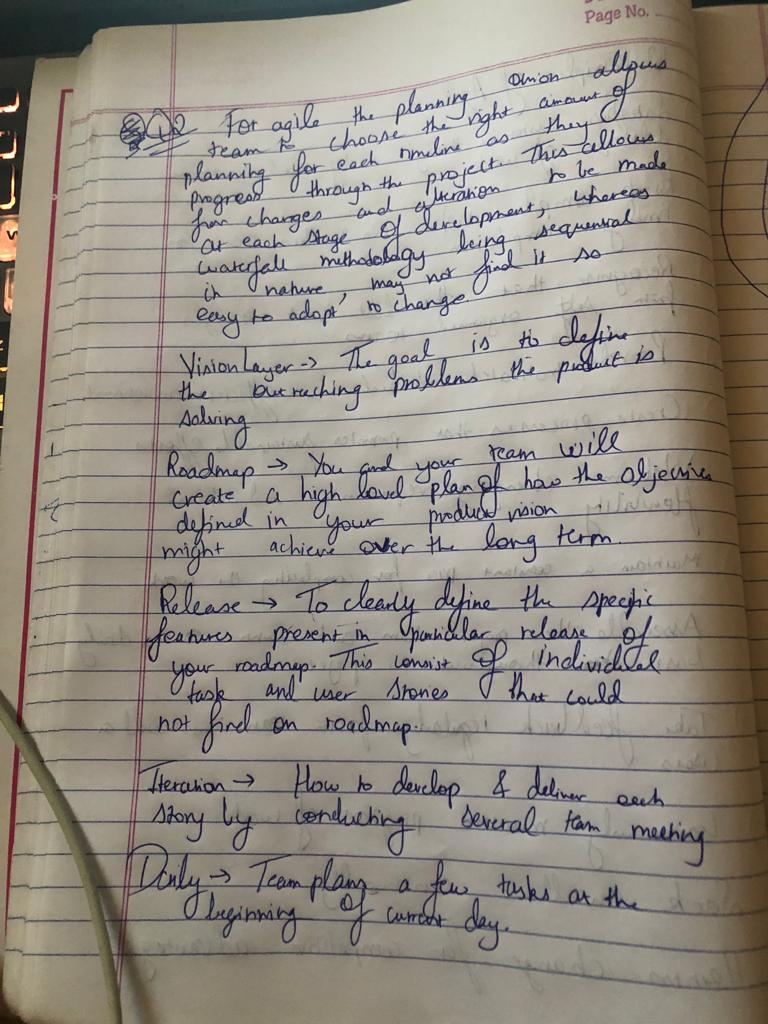 Page No.
Q2 For agile the planning onion allows
team to choose the right amount of
planning for each timeline as they
progress through the project. This allows
for changes and alteration to be made
at each stage of development, whereas
waterfall methodology being sequential
in nature, may not find it so
easy to adopt to change
Vision Layer → The goal is to define
the outreaching problems the product is
solving
Roadmap → You and your team will
create a high level plan of how the objectives
defined in your product vision
might achieve over the long term.
Release → To clearly define the specific
features present in particular release of
your roadmap. This consist of individual
task and user stories that could
not find on roadmap.
Iteration → How to develop & deliver each
story by conducting several team meeting
Daily → Team plans a few tasks at the
beginning of current day.